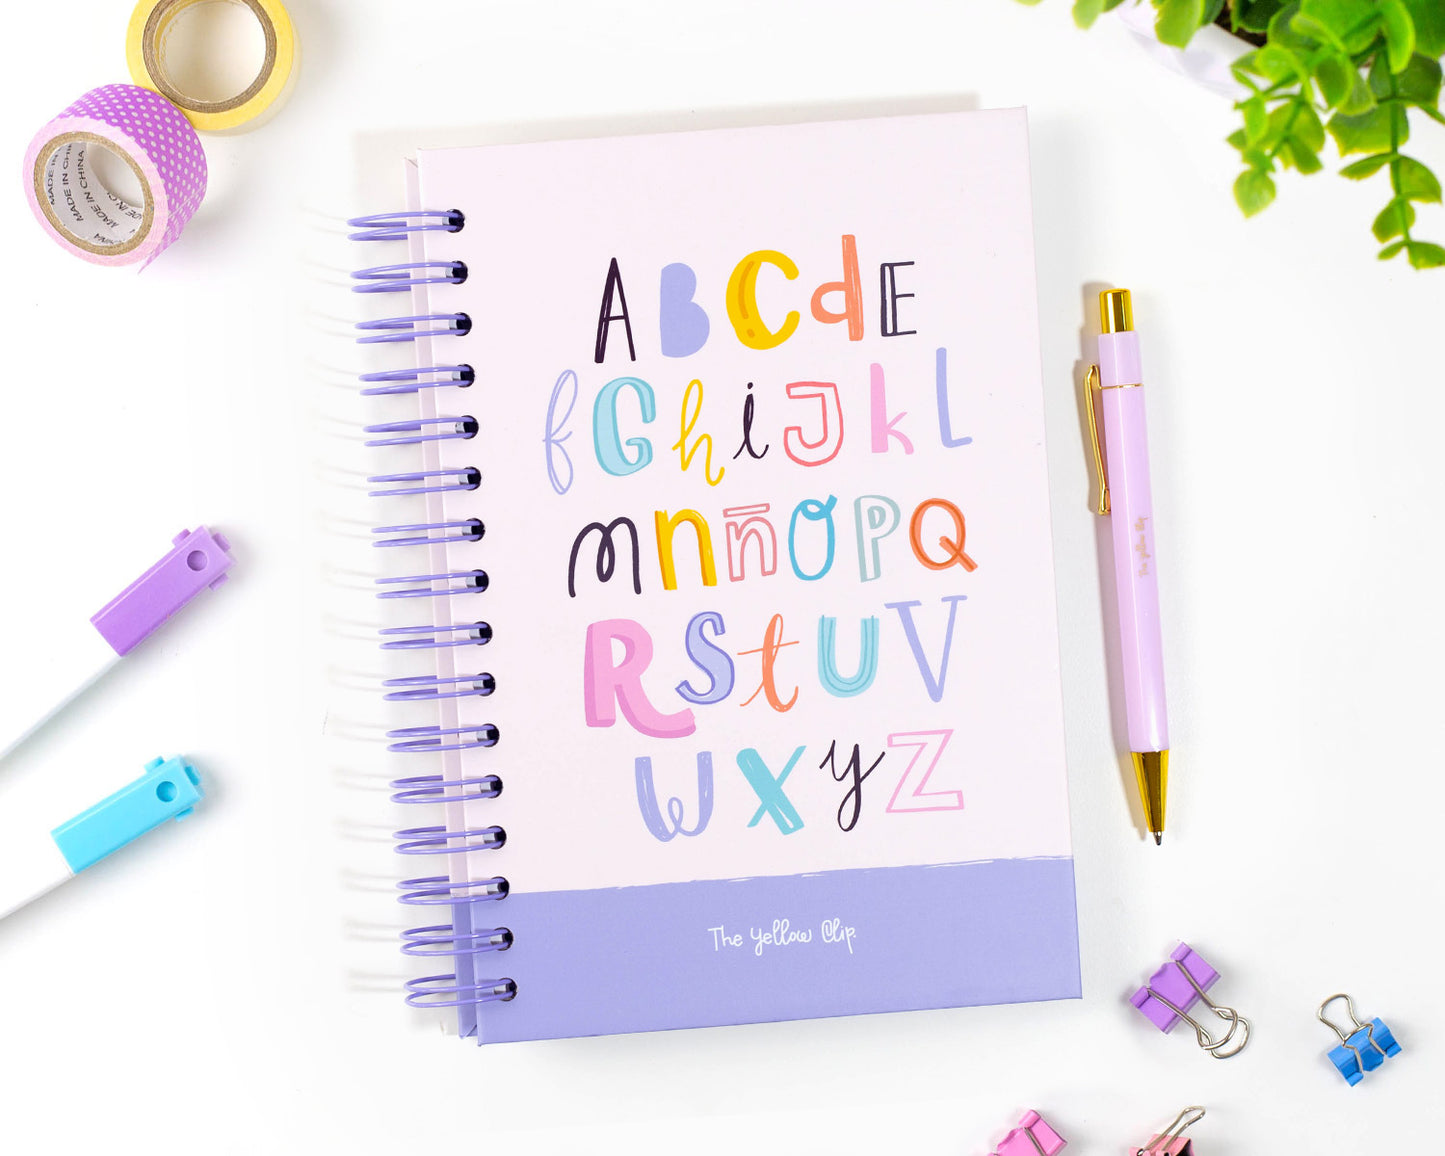 MADE IN CHINA
MADE IN CHINA
A B C d E
f G h i J k L
m n ñ O P Q
R S t U V
W X y Z
The Yellow Clip
The Yellow Clip